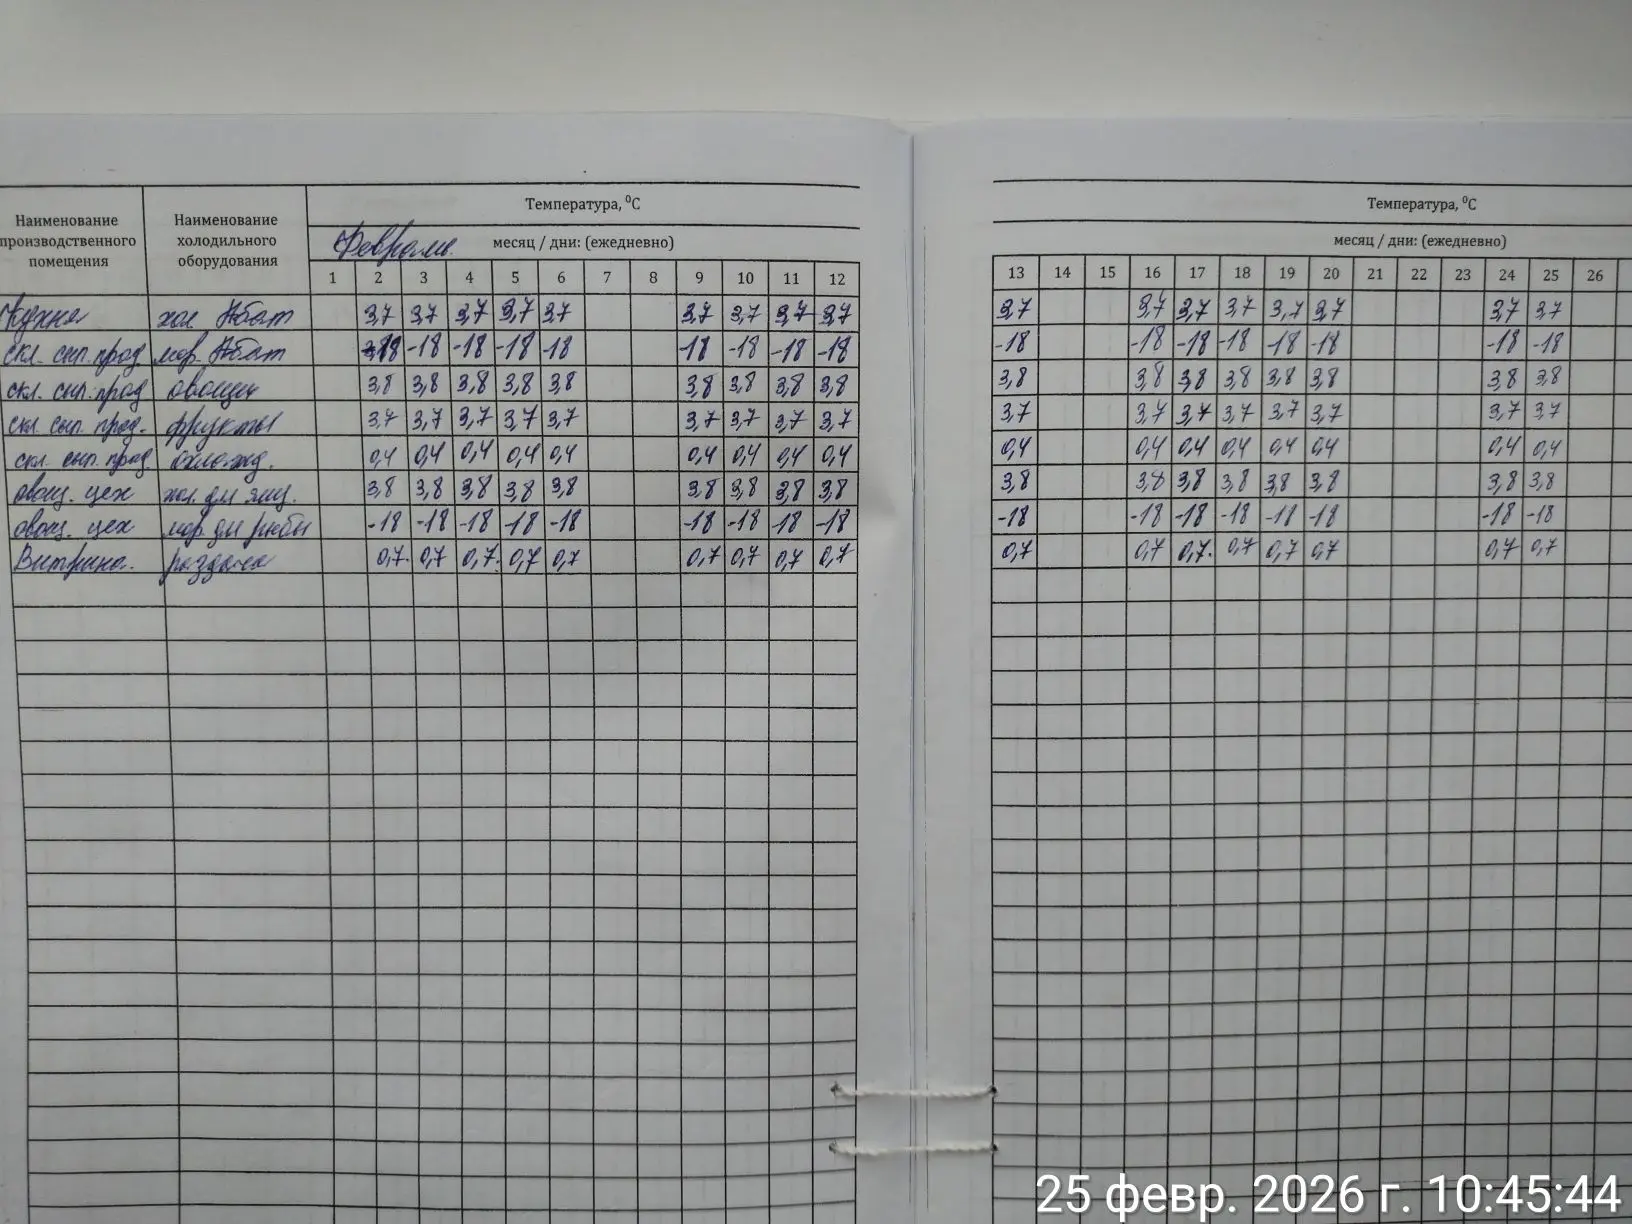 Температура, ⁰С
Наименование производственного помещения
Наименование холодильного оборудования
Февраль
месяц / дни: (ежедневно)
1 2 3 4 5 6 7 8 9 10 11 12
Кухня хол. Абат 3,7 3,7 3,7 3,7 3,7 3,7 3,7 3,7 3,7
скл. сып. прод. мор. Абат -18 -18 -18 -18 -18 -18 -18 -18 -18
скл. сып. прод овощи 3,8 3,8 3,8 3,8 3,8 3,8 3,8 3,8 3,8
скл. сып. прод. фрукты 3,7 3,7 3,7 3,7 3,7 3,7 3,7 3,7 3,7
скл. сып. прод. охлажд. 0,4 0,4 0,4 0,4 0,4 0,4 0,4 0,4 0,4
овощ. цех хол. для яиц. 3,8 3,8 3,8 3,8 3,8 3,8 3,8 3,8 3,8
овощ. цех мор. для рыбы -18 -18 -18 -18 -18 -18 -18 -18 -18
Витрина. раздача 0,7 0,7 0,7 0,7 0,7 0,7 0,7 0,7 0,7
Температура, ⁰С
месяц / дни: (ежедневно)
13 14 15 16 17 18 19 20 21 22 23 24 25 26
3,7 3,7 3,7 3,7 3,7 3,7 3,7 3,7
-18 -18 -18 -18 -18 -18 -18 -18
3,8 3,8 3,8 3,8 3,8 3,8 3,8 3,8
3,7 3,7 3,7 3,7 3,7 3,7 3,7 3,7
0,4 0,4 0,4 0,4 0,4 0,4 0,4 0,4
3,8 3,8 3,8 3,8 3,8 3,8 3,8 3,8
-18 -18 -18 -18 -18 -18 -18 -18
0,7 0,7 0,7 0,7 0,7 0,7 0,7 0,7
25 февр. 2026 г. 10:45:44